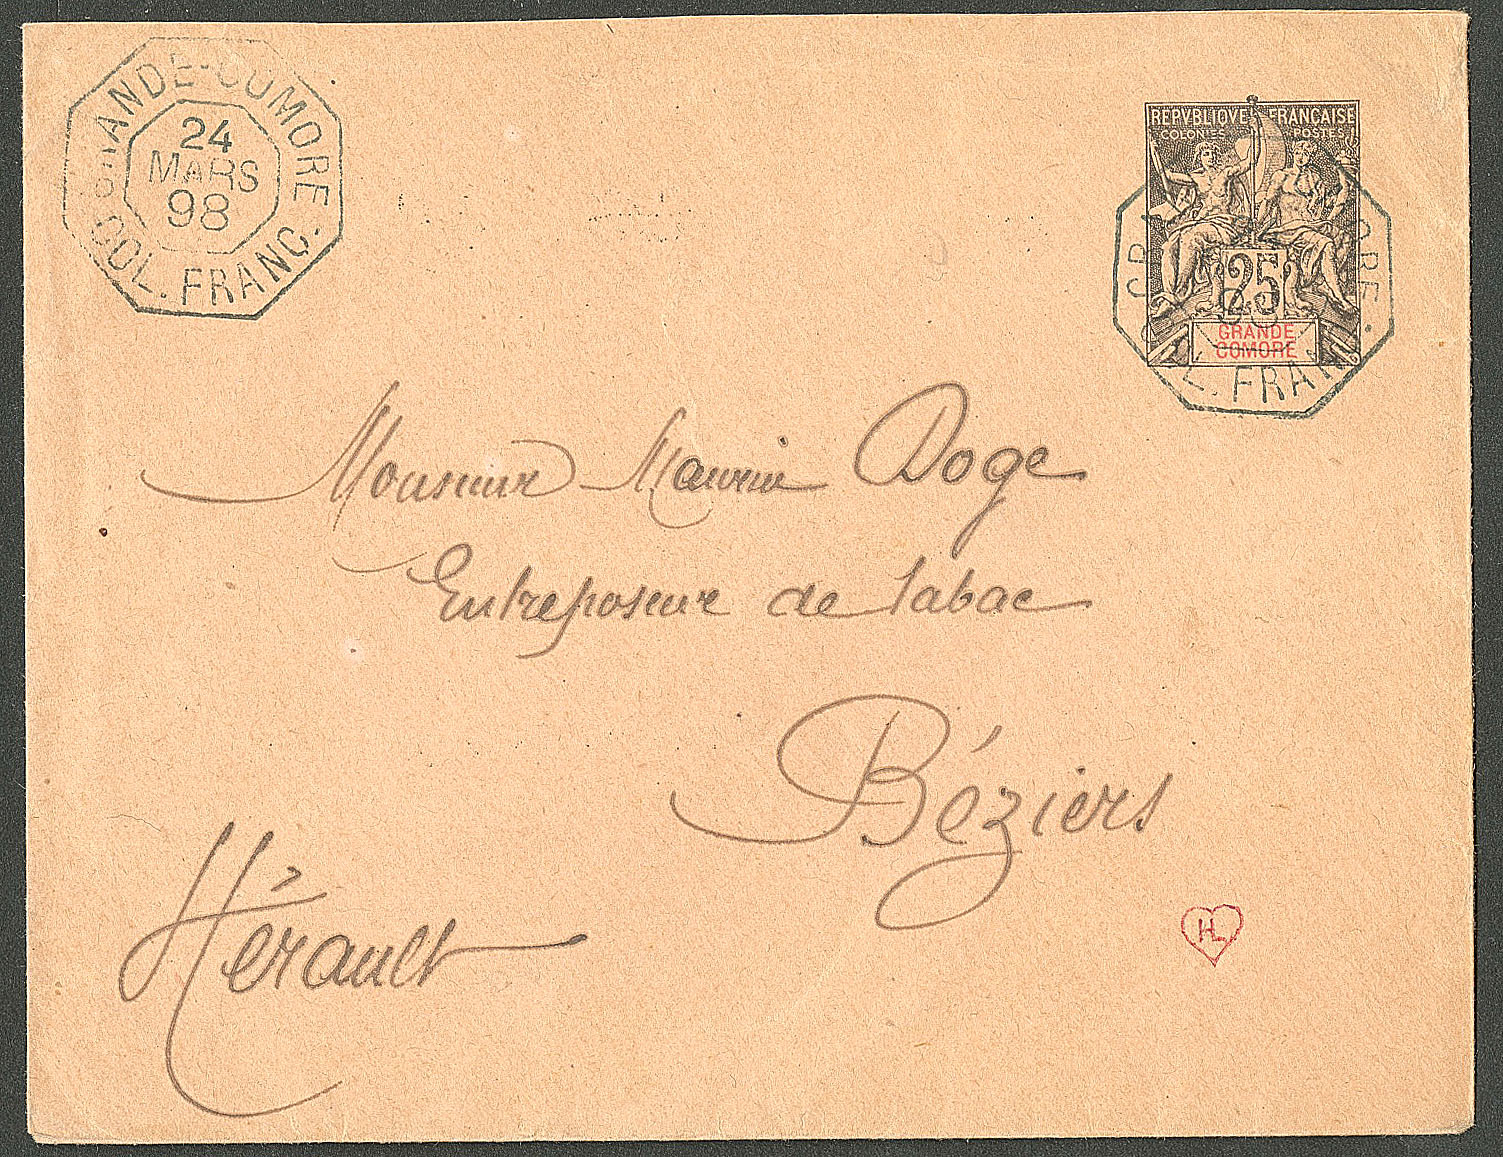 GRANDE-COMORE
24
MARS
98
COL. FRANC.
REPVBLIQVE FRANCAISE
COLONIES POSTES
25
GRANDE
COMORE
Monsieur Maurin Doge
Entreposeur de tabac
Béziers
Hérault
HL